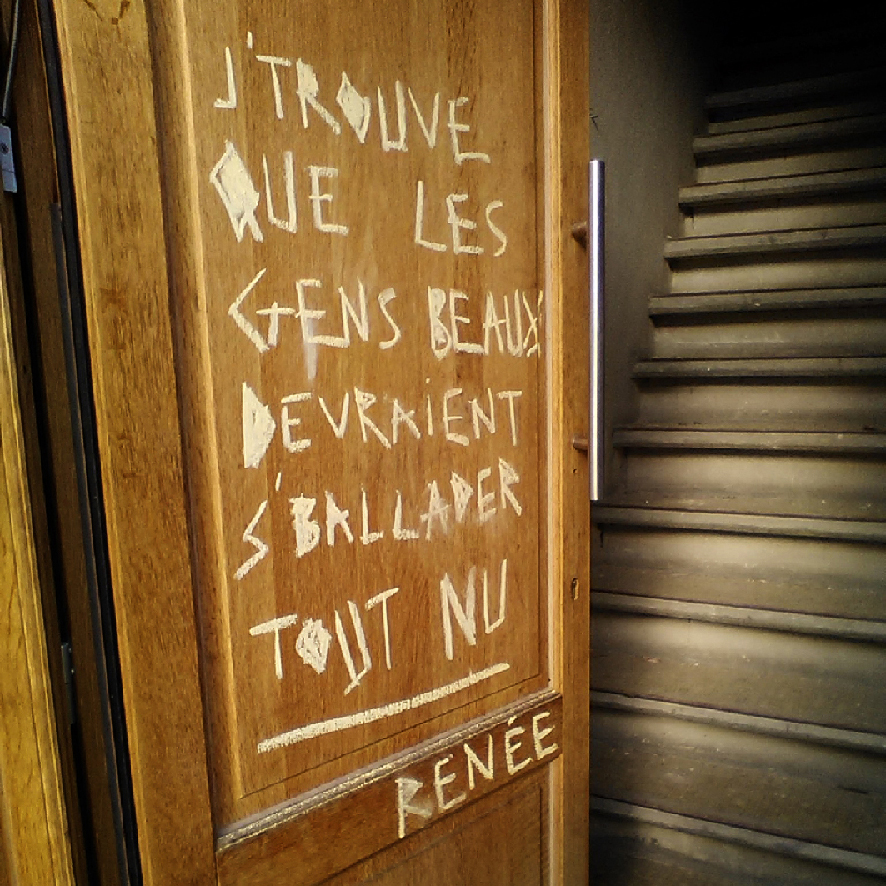 J'TROUVE
QUE LES
GENS BEAUX
DEVRAIENT
S'BALLADER
TOUT NU
RENÉE